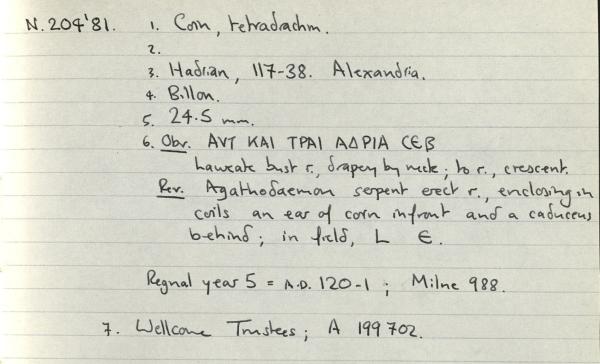 N.204'81. 1. Coin, tetradrachm.
2.
3. Hadrian, 117-38. Alexandria.
4. Billon.
5. 24.5 mm.
6. Obv. ΑVΤ ΚΑΙ ΤΡΑΙ ΑΔΡΙΑ ϹЄΒ
Laureate bust r., drapery by neck; to r., crescent.
Rev. Agathodaemon serpent erect r., enclosing in
coils an ear of corn infront and a caduceus
behind; in field, L Є.
Regnal year 5 = A.D. 120-1; Milne 988.
7. Wellcome Trustees; A 199702.